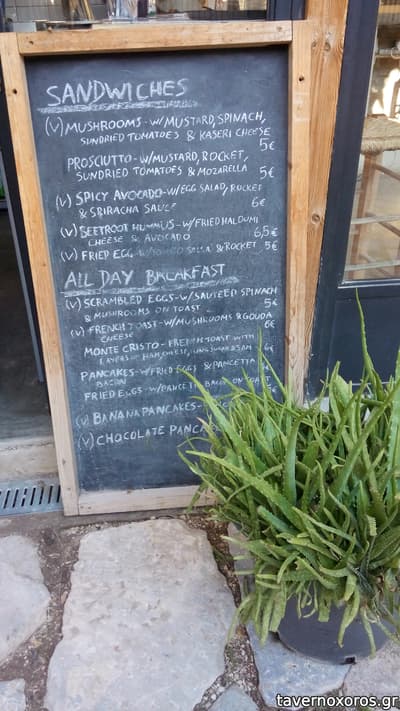 SANDWICHES
(V) MUSHROOMS - W/MUSTARD, SPINACH,
SUNDRIED TOMATOES & KASERI CHEESE
5€
PROSCIUTTO - W/MUSTARD, ROCKET,
SUNDRIED TOMATOES & MOZARELLA 5€
(V) SPICY AVOCADO - W/EGG SALAD, ROCKET
& SRIRACHA SAUCE 6€
(V) BEETROOT HUMMUS - W/FRIED HALOUMI
CHEESE & AVOCADO 6,5€
(V) FRIED EGG - W/ SALSA & ROCKET 5€
ALL DAY BREAKFAST
(V) SCRAMBLED EGGS - W/SAUTEED SPINACH
& MUSHROOMS ON TOAST 5€
(V) FRENCH TOAST - W/MUSHROOMS & GOUDA
CHEESE 6€
MONTE CRISTO - FRENCH TOAST WITH
LAYERS OF HAM, CHEESE, JAM 6€
PANCAKES - W/FRIED EGGS & PANCETTA
BACON
FRIED EGGS - W/PANCETTA BACON ON TOAST
(V) BANANA PANCAKES -
(V) CHOCOLATE
tavernoxoros.gr